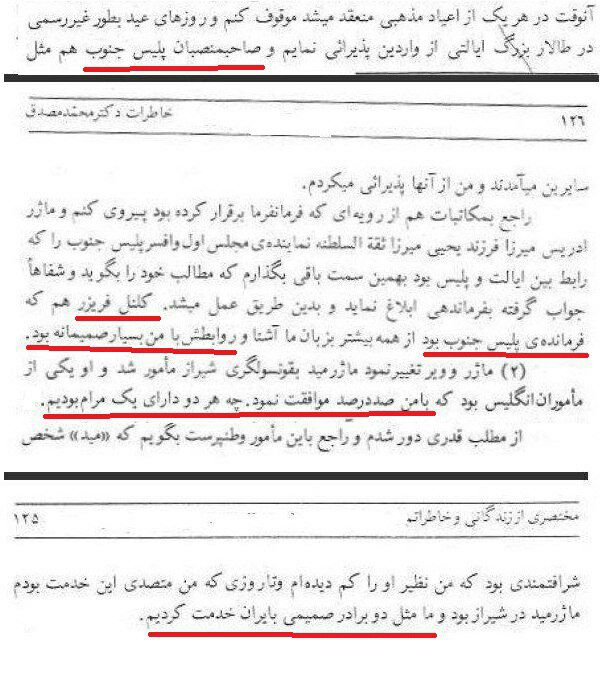 آنوقت در هر یک از اعیاد مذهبی منعقد میشد موقوف کنم و روزهای عید بطور غیررسمی
در طالار بزرگ ایالتی از واردین پذیرائی نمایم و صاحبمنصبان پلیس جنوب هم مثل
۱۲۶ خاطرات دکتر محمد مصدق
سایرین میآمدند و من از آنها پذیرائی میکردم.
راجع بمکاتبات هم از رویه‌ای که فرمانفرما برقرار کرده بود پیروی کنم و ماژر
ادریس میرزا فرزند یحیی میرزا ثقة السلطنه نماینده‌ی مجلس اول و افسر پلیس جنوب را که
رابط بین ایالت و پلیس بود بهمین سمت باقی بگذارم که مطالب خود را بگوید و شفاهاً
جواب گرفته بفرماندهی ابلاغ نماید و بدین طریق عمل میشد. کلنل فریزر هم که
فرمانده‌ی پلیس جنوب بود از همه بیشتر بزبان ما آشنا و روابطش با من بسیار صمیمانه بود.
(۲) ماژر وویر تغییر نمود ماژر مید بقونسولگری شیراز مأمور شد و او یکی از
مأموران انگلیس بود که بامن صددرصد موافقت نمود. چه هر دو دارای یک مرام بودیم.
از مطلب قدری دور شدم و راجع باین مأمور وطنپرست بگویم که «مید» شخص
مختصری از زندگانی و خاطراتم ۱۲۵
شرافتمندی بود که من نظیر او را کم دیده‌ام و تا روزی که من متصدی این خدمت بودم
ماژر مید در شیراز بود و ما مثل دو برادر صمیمی بایران خدمت کردیم.